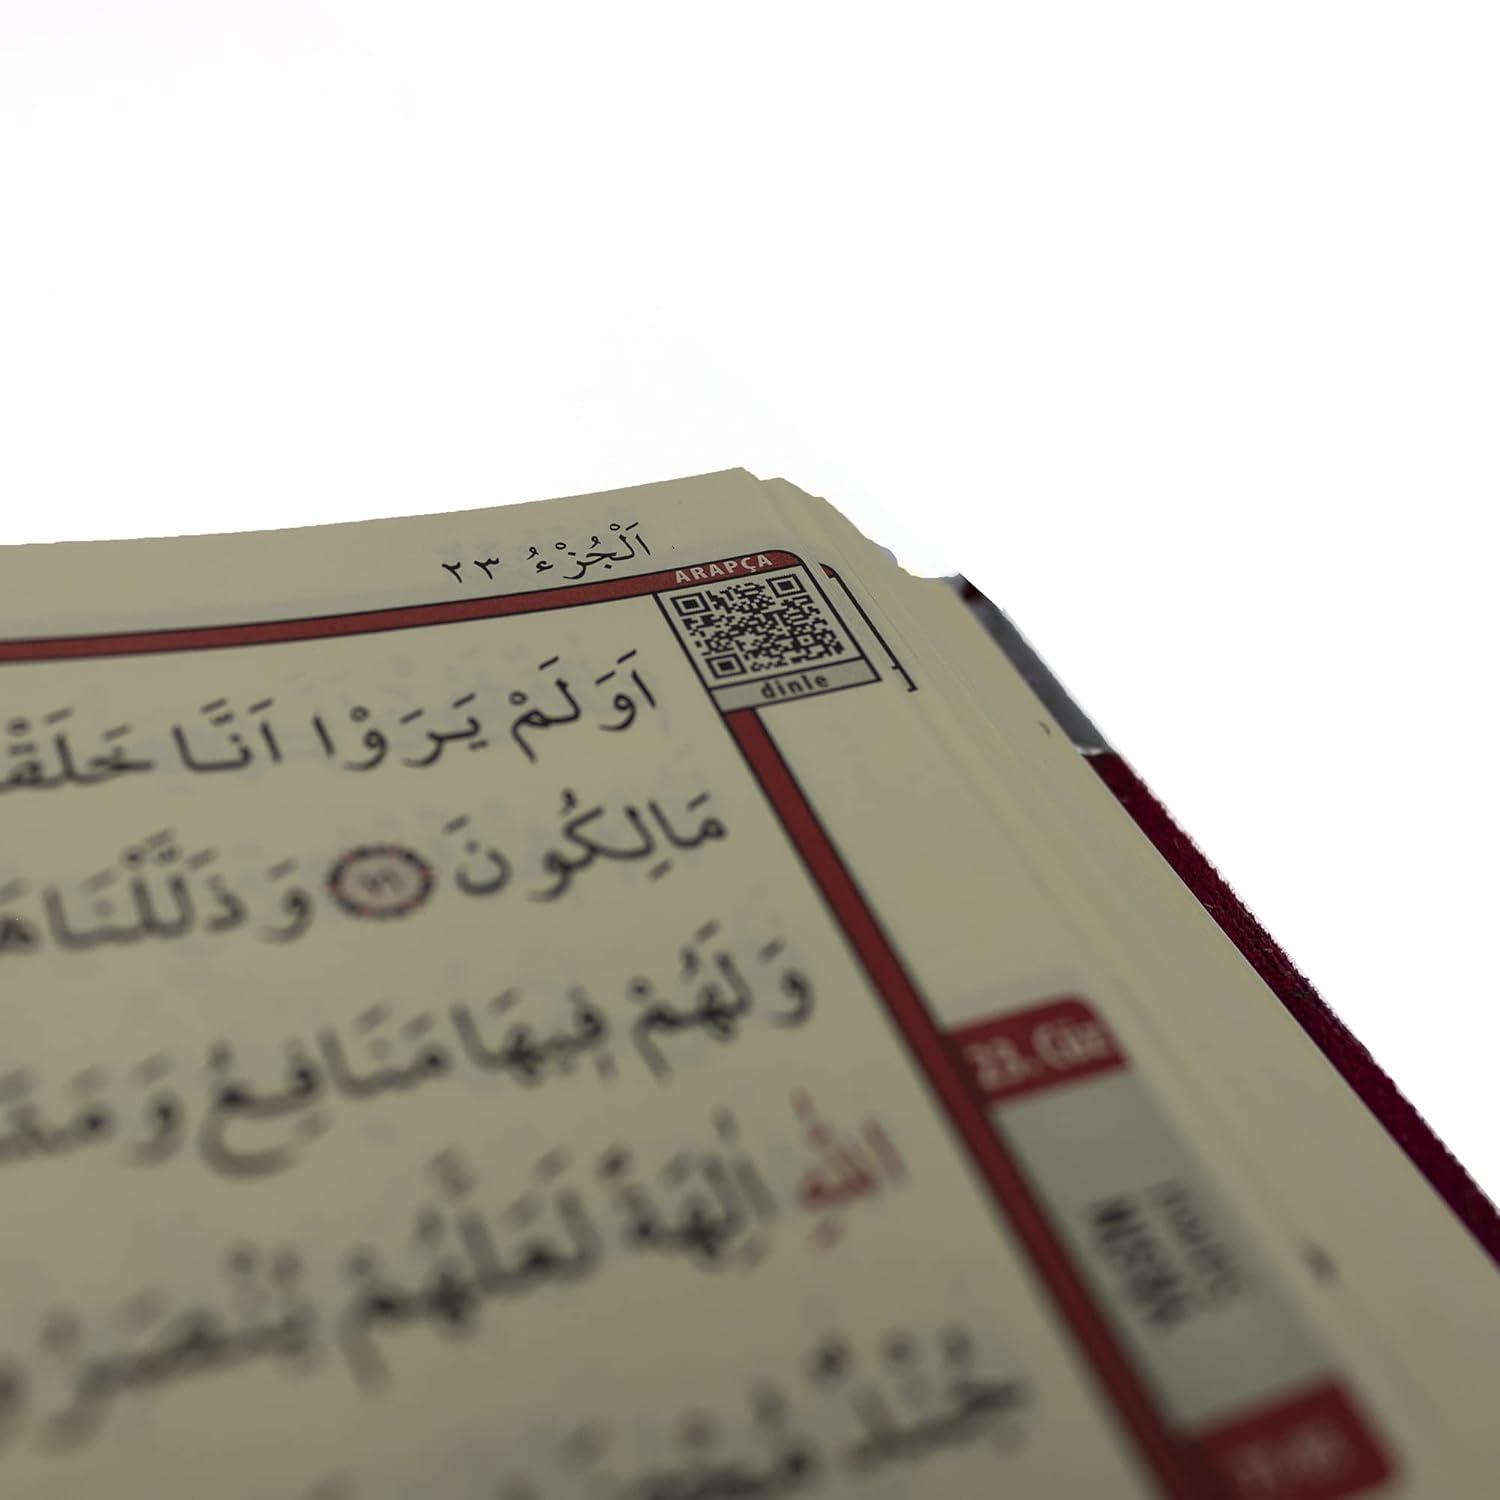 اَلْجُزْءُ ٢٣
ARAPÇA
dinle
اَوَلَمْ يَرَوْا اَنَّا خَلَقْ
مَالِكُونَ ٧١ وَذَلَّلْنَاهَ
وَلَهُمْ فِيهَا مَنَافِعُ وَمَ
اللّٰهِ اٰلِهَةً لَعَلَّهُمْ يُنْصَرُ
23. Cüz